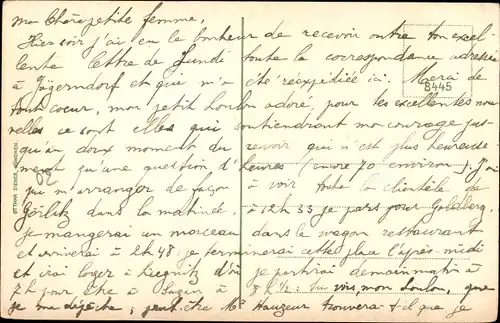 ma Chère petite femme,
Hier soir j'ai eu le bonheur de recevoir outre ton excel-
lente lettre de Lundi toute la correspondance adressée
à Jägerndorf et qui m'a été réexpédiée ici. Merci de
tout coeur, mon petit Loulou adoré, pour tes excellentes nou-
velles ce sont elles qui soutiendront mon courage jus-
qu'au doux moment du revoir qui n'est plus heureuse-
ment qu'une question d'heures (encore 70 environ). J'ai
pu m'arranger de façon à voir toute la clientèle de
Görlitz dans la matinée. à 12h 33 je pars pour Goldberg,
je mangerai un morceau dans le wagon restaurant
et arriverai à 2h 48, je terminerai cette place l'après-midi
et irai loger à Liegnitz d'où je partirai demain matin à
7h pour être à Sagan à 8h½: tu vois, mon Loulou, que
je me dépêche; peut-être Mr Hauzeur trouvera-t-il que je
8445
OTTMAR ZIEHER, MÜNCHEN